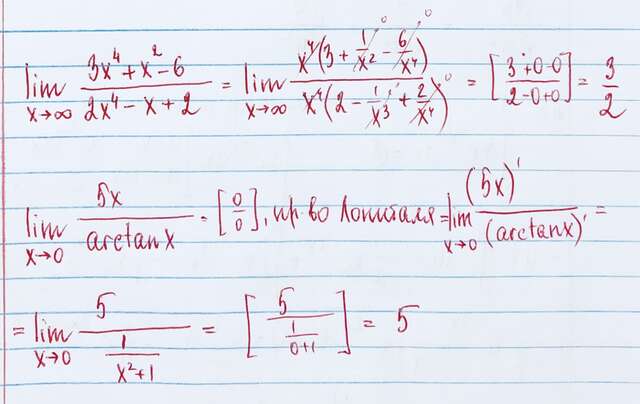 lim x→∞ (3x⁴ + x² - 6)/(2x⁴ - x + 2) = lim x→∞ (x⁴(3 + 1/x² - 6/x⁴))/(x⁴(2 - 1/x³ + 2/x⁴)) = [(3+0-0)/(2-0+0)] = 3/2
lim x→0 5x/arctanx = [0/0], пр-во Лопиталя = lim x→0 (5x)'/(arctanx)' =
= lim x→0 5/(1/(x²+1)) = [5/(1/(0+1))] = 5